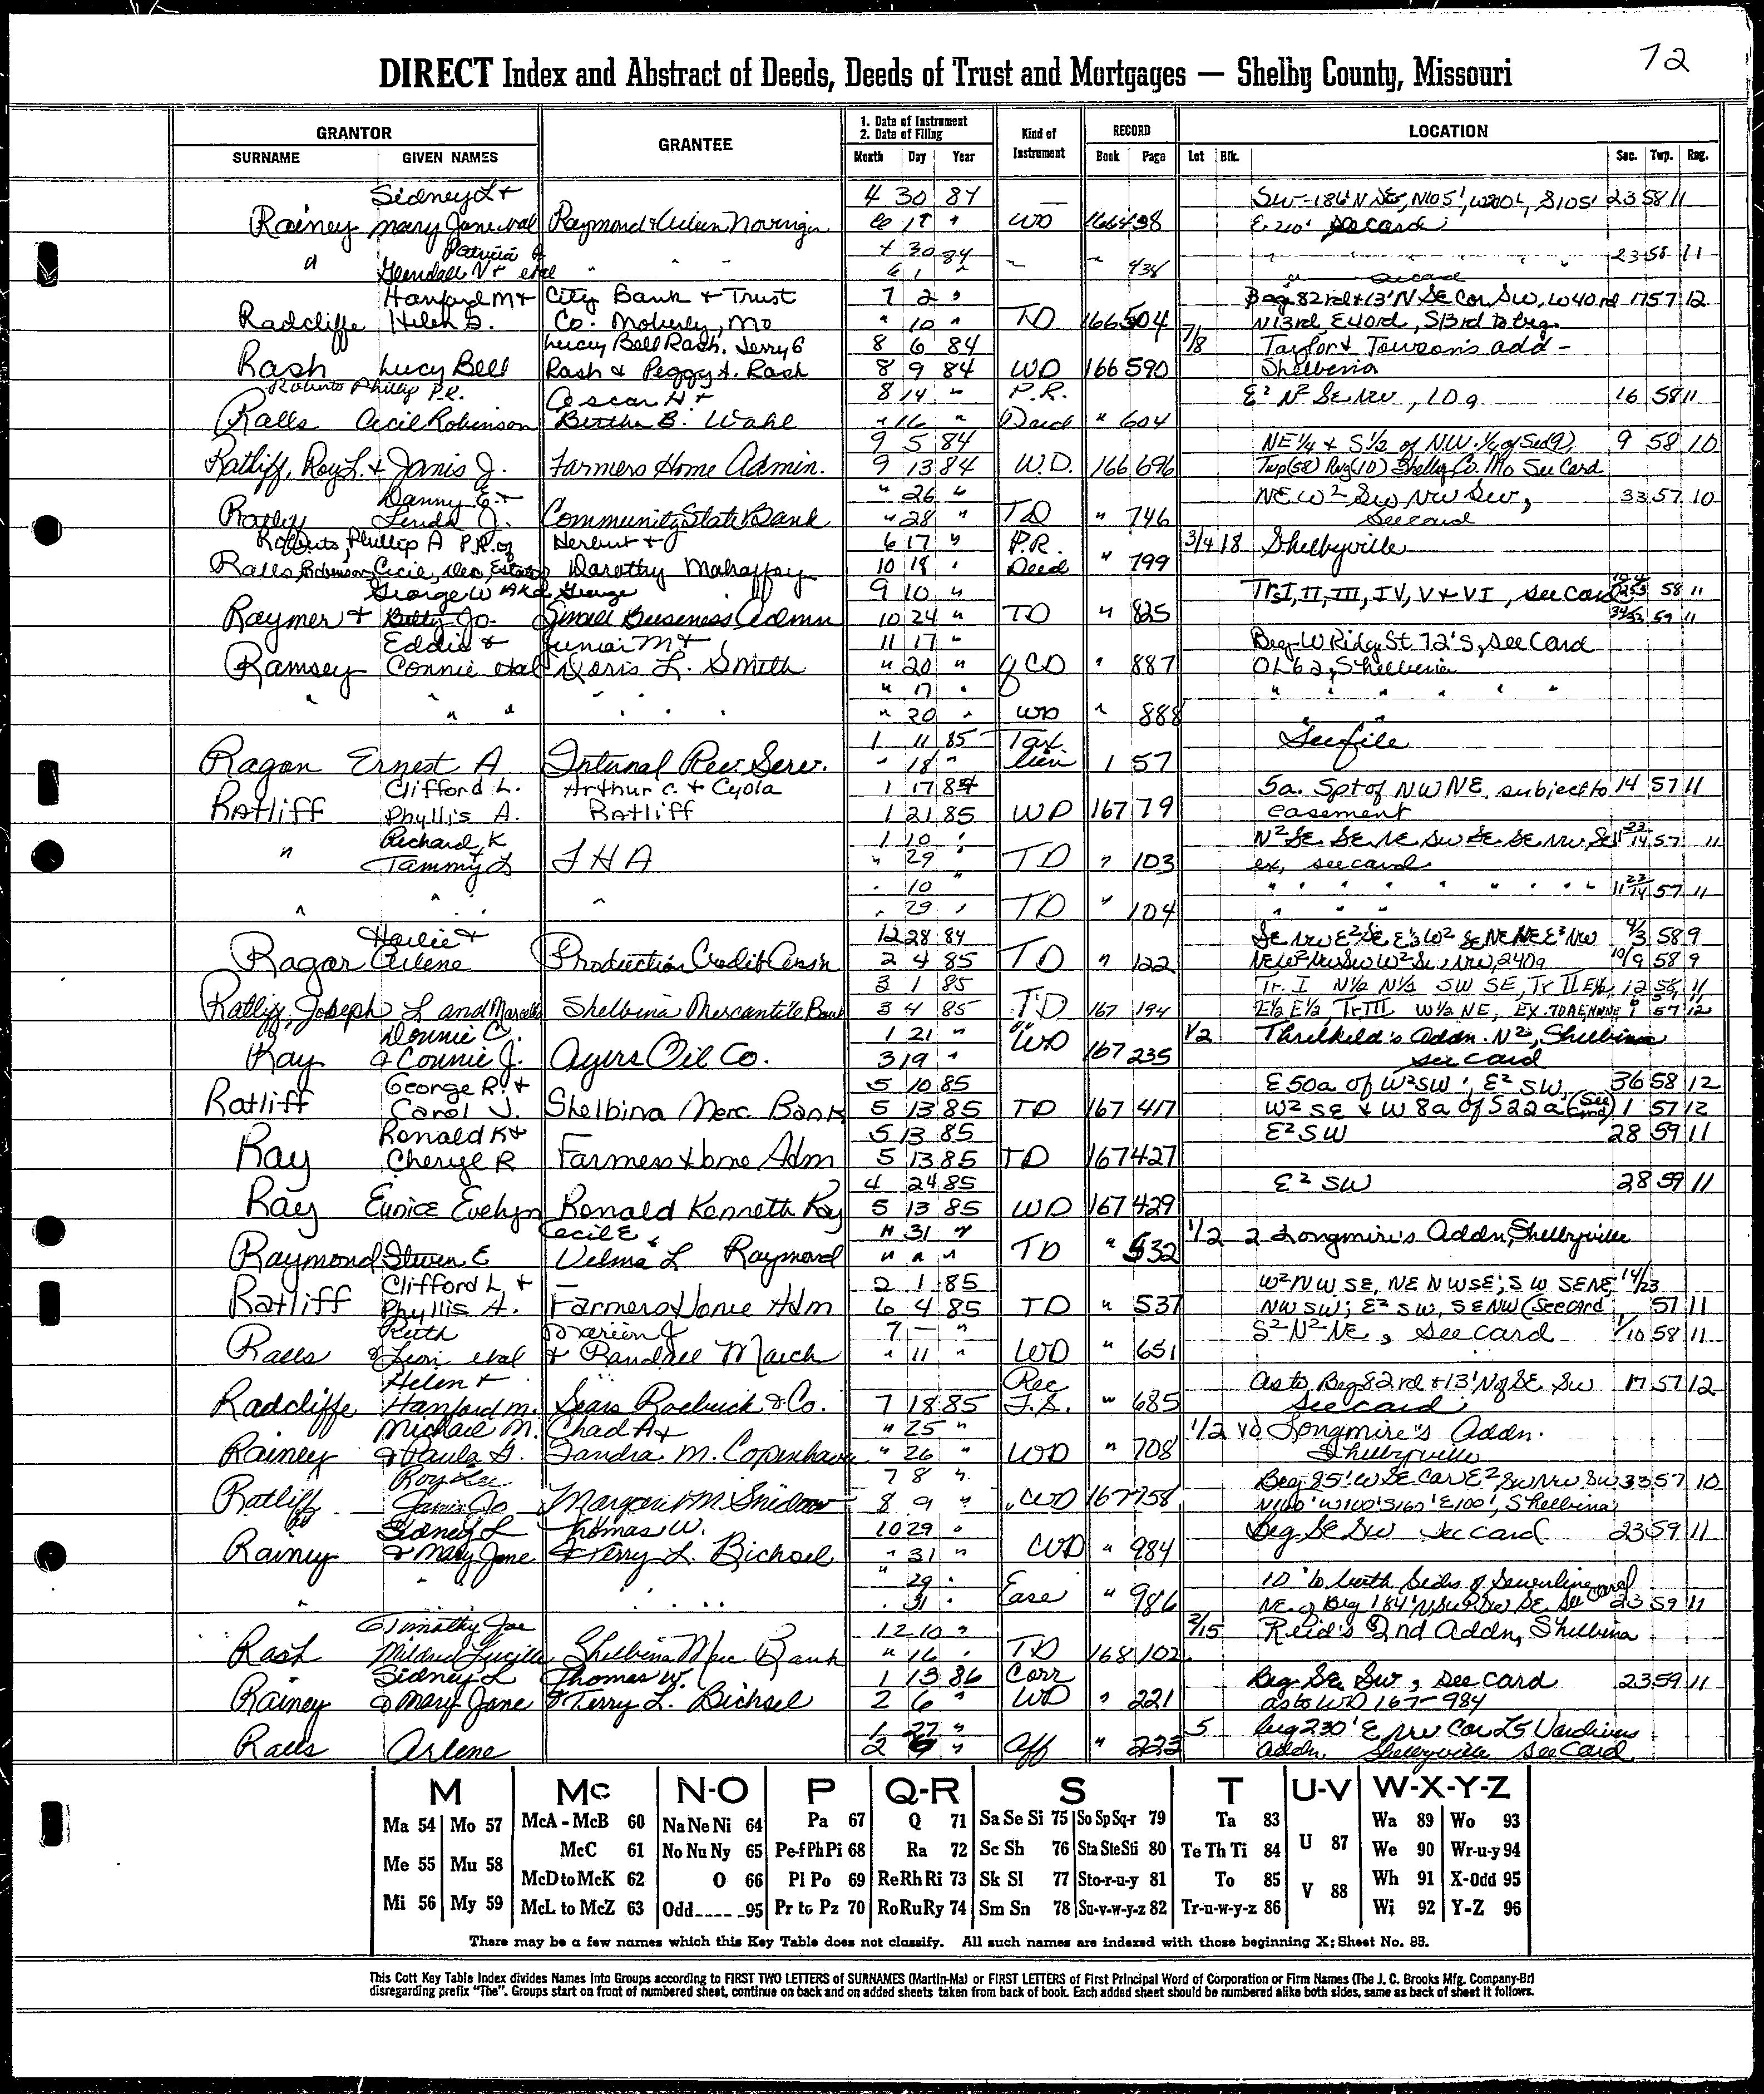 72
DIRECT Index and Abstract of Deeds, Deeds of Trust and Mortgages — Shelby County, Missouri
GRANTOR GRANTEE 1. Date of Instrument 2. Date of Filing Kind of Instrument RECORD LOCATION
SURNAME GIVEN NAMES Month Day Year Book Page Lot Blk. Sec. Twp. Rng.
Sidney L + 4 30 84 23 58 11
Rainey Mary Jane Raymond & WD 166 438 E 210' see card
Patricia 4 30 84 23 58 11
Glendall V + etal 6 1 " 438
Hanford M + City Bank + Trust 7 2 " Beg 82rd + 13' N SE Cor SW, W 40 rd 17 57 12
Radcliffe Helen Co. Moberly, Mo " 10 " TD 166 504 N13rd, E40rd, S13rd to beg.
Lucy Bell Rash, Jerry G 8 6 84 7/8 Taylor & Towson's add -
Rash Lucy Bell Rash & Peggy A. Rash 8 9 84 WD 166 590 Shelbina
Roberts Phillip P.R. Oscar H + 8 14 " P.R. E² N² SE NW, 10a 16 58 11
Ralls Cecil Robinson Bertha B. Wahl " 16 " Deed " 604
9 5 84 NE 1/4 & S 1/2 of NW 1/4 of Sec(9) 9 58 10
Ratliff, Roy L. + Janis J. Farmers Home Admin. 9 13 84 W.D. 166 696 Twp(58) Rng(10) Shelby Co. Mo See Card
Danny E + " 26 " NE W² SW NW SW, 33 57 10
Linda J. Community State Bank " 28 " TD " 746 See card
Roberts, Phillip A P.R. of Herbert + 6 17 " P.R. 3/4 18 Shelbyville
Ralls, Robinson, Cecil, Estate Dorothy Mahaffey 10 18 " Deed " 799
George W AKA George 9 10 " Tr I, II, III, IV, V & VI, see card 58 11
Raymer + Betty Jo Small Business Admn 10 24 " TD " 825 59 11
Eddie & Junior M + 11 17 " Beg W Ridge St 72' S, see Card
Ramsey Connie etal Doris L. Smith " 20 " QCD " 887 OL 62, Shelbina
" " " " " 17 " " " " " "
" 20 " WD " 888
1 11 85 Tax See file
Ragan Ernest A Internal Rev. Serv. " 18 " lien 1 57
Clifford L. Arthur C. + Cyola 1 17 85 5a. Spt of NW NE, subject to 14 57 11
Ratliff Phyllis A. Ratliff 1 21 85 WD 167 79 easement
Richard K 1 10 " N² SE SE NE SW SE SE NW SE 57 11
" Tammy L FHA " 29 " TD " 103 ex, see card
" 10 " " " " " " 57 11
" " " " 29 " TD " 104
Harlie + 12 28 84 58 9
Arlene Production Credit Ass'n 2 4 85 TD " 122 240a 10/9 58 9
3 1 85 Tr. I N½ N½ SW SE, Tr II 12 58 11
Ratliff, Joseph L and Shelbina Mercantile Bank 3 4 85 TD 167 194 E½ E½ Tr III W½ NE, 57 12
Donnie C. 1 21 " WD 1/2 Threlkeld's Addn. N², Shelbina
Ray & Connie J. Ayers Oil Co. 3 19 " 167 235 see card
George R. & 5 10 85 E 50a of W² SW; E² SW, 36 58 12
Ratliff Carol J. Shelbina Merc Bank 5 13 85 TD 167 417 W² SE & W 8a of S 22a (See card) 1 57 12
Ronald K + 5 13 85 E² SW 28 59 11
Ray Cheryl R Farmers Home Adm 5 13 85 TD 167 427
4 24 85 E² SW 28 59 11
Ray Eunice Evelyn Ronald Kenneth Ray 5 13 85 WD 167 429
Cecil E & " 31 " 1/2 2 Longmire's Addn, Shelbyville
Raymond Steven E Velma L Raymond " " " TD " 532
Clifford L + 2 1 85 W² NW SE, NE NW SE; SW SE NE, 14/23
Ratliff Phyllis A. Farmers Home Adm 6 4 85 TD " 537 NW SW; E² SW, SE NW (See card 57 11
Ruth 7 — " S² N² NE, see card 1/10 58 11
Ralls & Leon etal & Randall March " 11 " WD " 651
Helen + Rec As to Beg 82rd + 13' N of SE SW 17 57 12
Radcliffe Hanford M. Sears Roebuck & Co. 7 18 85 F.S. " 685 see card
Michael M. Chad A + " 25 " 1/2 Longmire's Addn.
Rainey & Paula Sandra M. Copenhaver " 26 " WD " 708 Shelbyville
Roy Lee 7 8 " Beg 85' W SE Cor E² SW NW SW 33 57 10
Ratliff Janis Jo Margaret M. Snidow 8 9 " WD 167 758 N160' W100' S160' E100', Shelbina
Sidney L Thomas W. 10 29 " Beg SE SW see card 23 59 11
Rainey & Mary Jane & Terry L. Bichsel " 31 " WD " 984
" 29 " 10' to both sides of sewerline
" " " " 31 " Ease " 986 23 59 11
Timothy Joe 12 10 " 2/15 Reid's 2nd Addn, Shelbina
Rash Mildred Lucille Shelbina Merc Bank " 16 " TD 168 102
Sidney L Thomas W. 1 13 86 Corr Beg SE SW, see card 23 59 11
Rainey & Mary Jane & Terry L. Bichsel 2 6 " WD " 221 as to WD 167-984
1 27 " 5 beg 230' E NW Cor L5
Ralls Arlene 2 6 " Aff " Addn Shelbyville see Card
M Mc N-O P Q-R S T U-V W-X-Y-Z
Ma 54 Mo 57 McA - McB 60 Na Ne Ni 64 Pa 67 Q 71 Sa Se Si 75 So Sp Sq-r 79 Ta 83 U 87 Wa 89 Wo 93
Me 55 Mu 58 McC 61 No Nu Ny 65 Pe-f Ph Pi 68 Ra 72 Sc Sh 76 Sta Ste Sti 80 Te Th Ti 84 V 88 We 90 Wr-u-y 94
McD to McK 62 O 66 Pl Po 69 Re Rh Ri 73 Sk Sl 77 Sto-r-u-y 81 To 85 Wh 91 X-Odd 95
Mi 56 My 59 McL to McZ 63 Odd---- -95 Pr to Pz 70 Ro Ru Ry 74 Sm Sn 78 Su-v-w-y-z 82 Tr-u-w-y-z 86 Wi 92 Y-Z 96
There may be a few names which this Key Table does not classify. All such names are indexed with those beginning X; Sheet No. 95.
This Cott Key Table Index divides Names Into Groups according to FIRST TWO LETTERS of SURNAMES (Martin-Ma) or FIRST LETTERS of First Principal Word of Corporation or Firm Names (The J. C. Brooks Mfg. Company-Br)
disregarding prefix "The". Groups start on front of numbered sheet, continue on back and on added sheets taken from back of book. Each added sheet should be numbered alike both sides, same as back of sheet it follows.